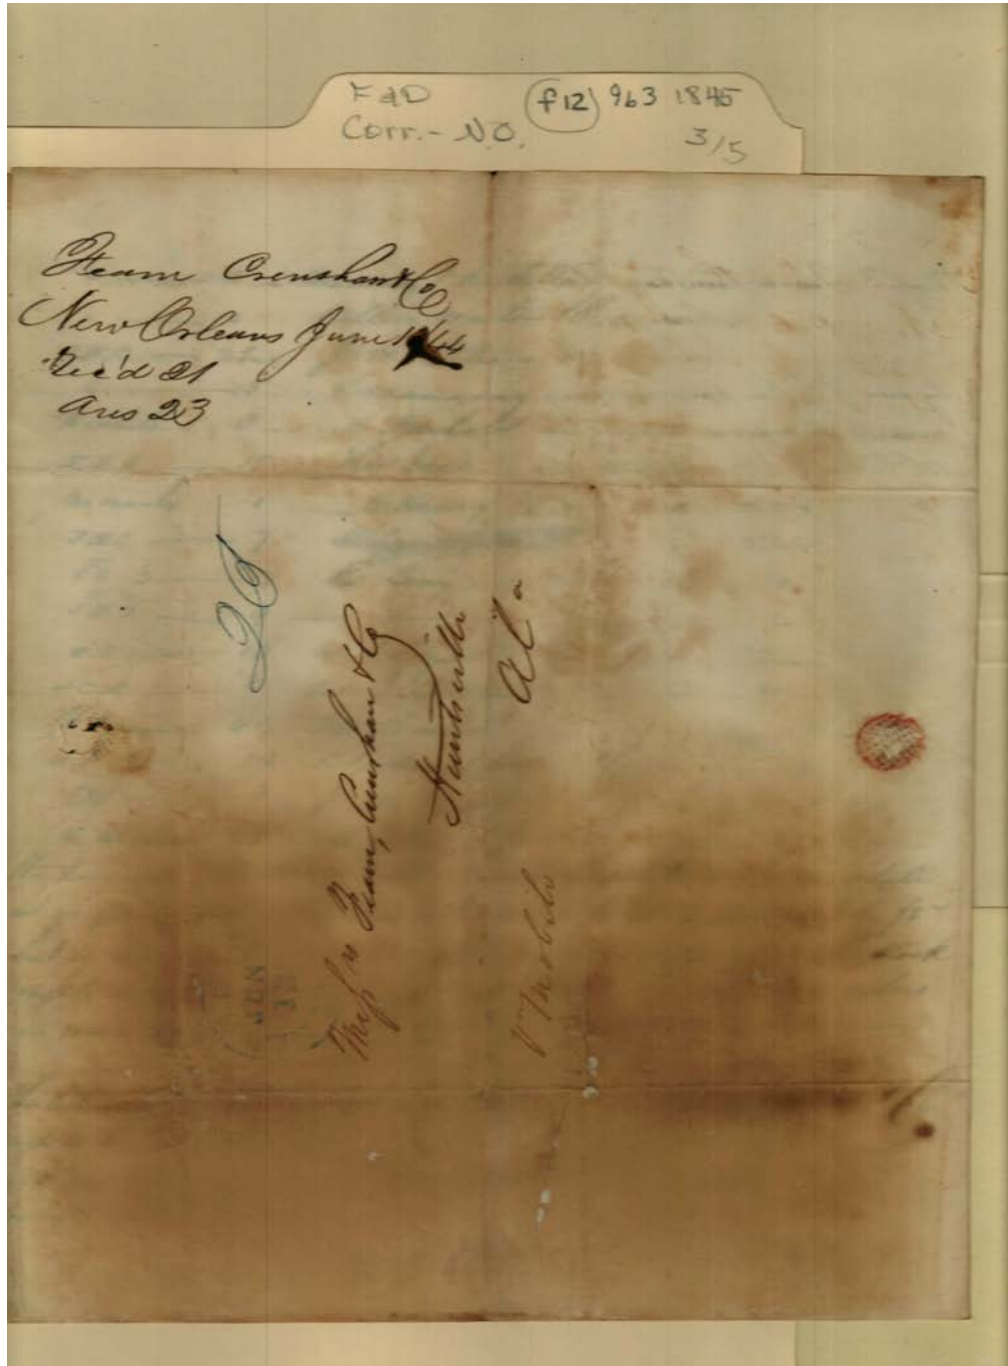 F&D (f12) 963 1845
Corr. - N.O. 3/5
Fearn Crenshaw & Co
New Orleans June /44
Rec'd 21
Ans 23
25
Messrs Fearn, Crenshaw & Co
Huntsville
Ala
Mobile
JUN